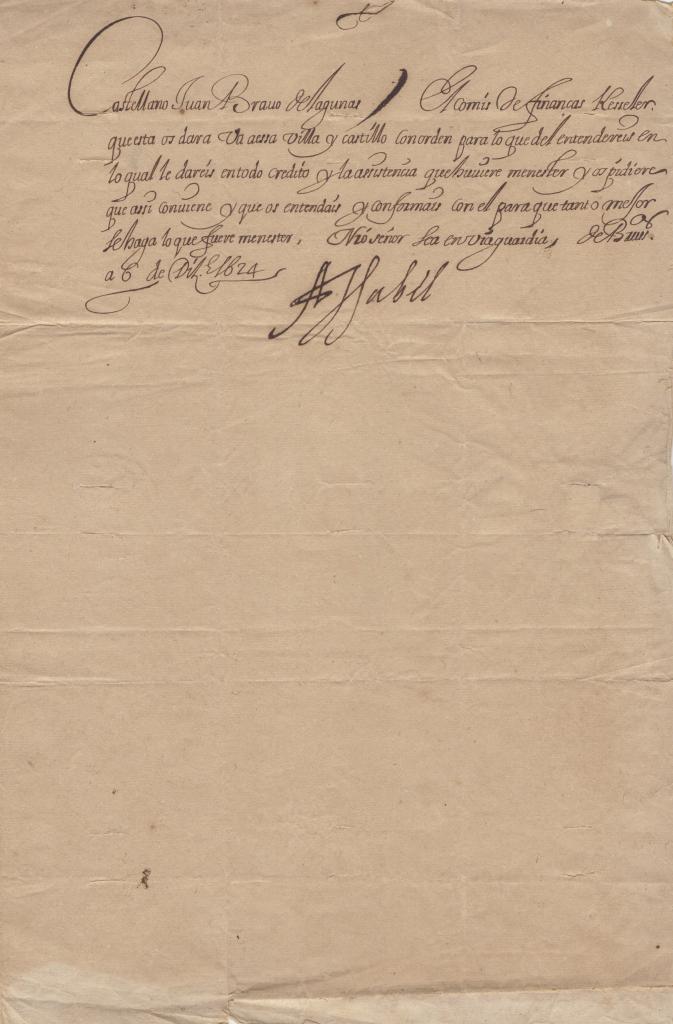 Castellano Juan Bravo de lagunas El comis de finanças Kesseler
que esta os dara Va a essa villa y castillo con orden para lo que del entendereis en
lo qual le dareis en todo credito y la assistencia que huviere menester y os pidiere
que assi conviene y que os entendais y conformais con el para que tanto mejor
se haga lo que fuere menester, Nrõ señor sea en vrã guardia, de Brus.
a 6 de 1624
A Isabel